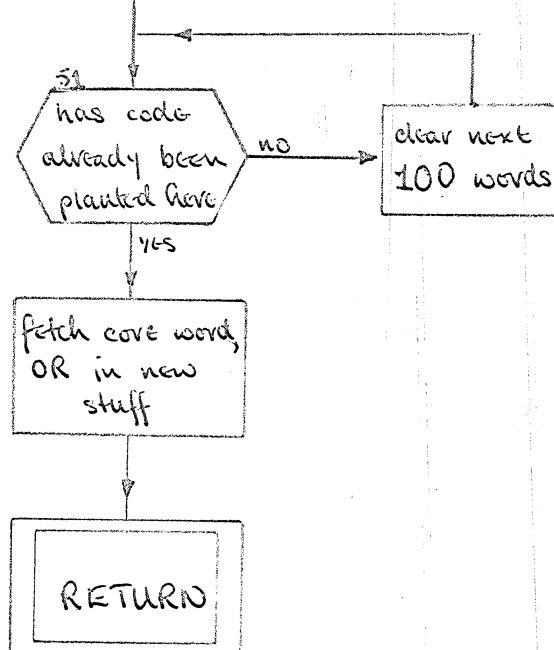 51
has code
already been
planted here
no
clear next
100 words
YES
fetch core word,
OR in new
stuff
RETURN